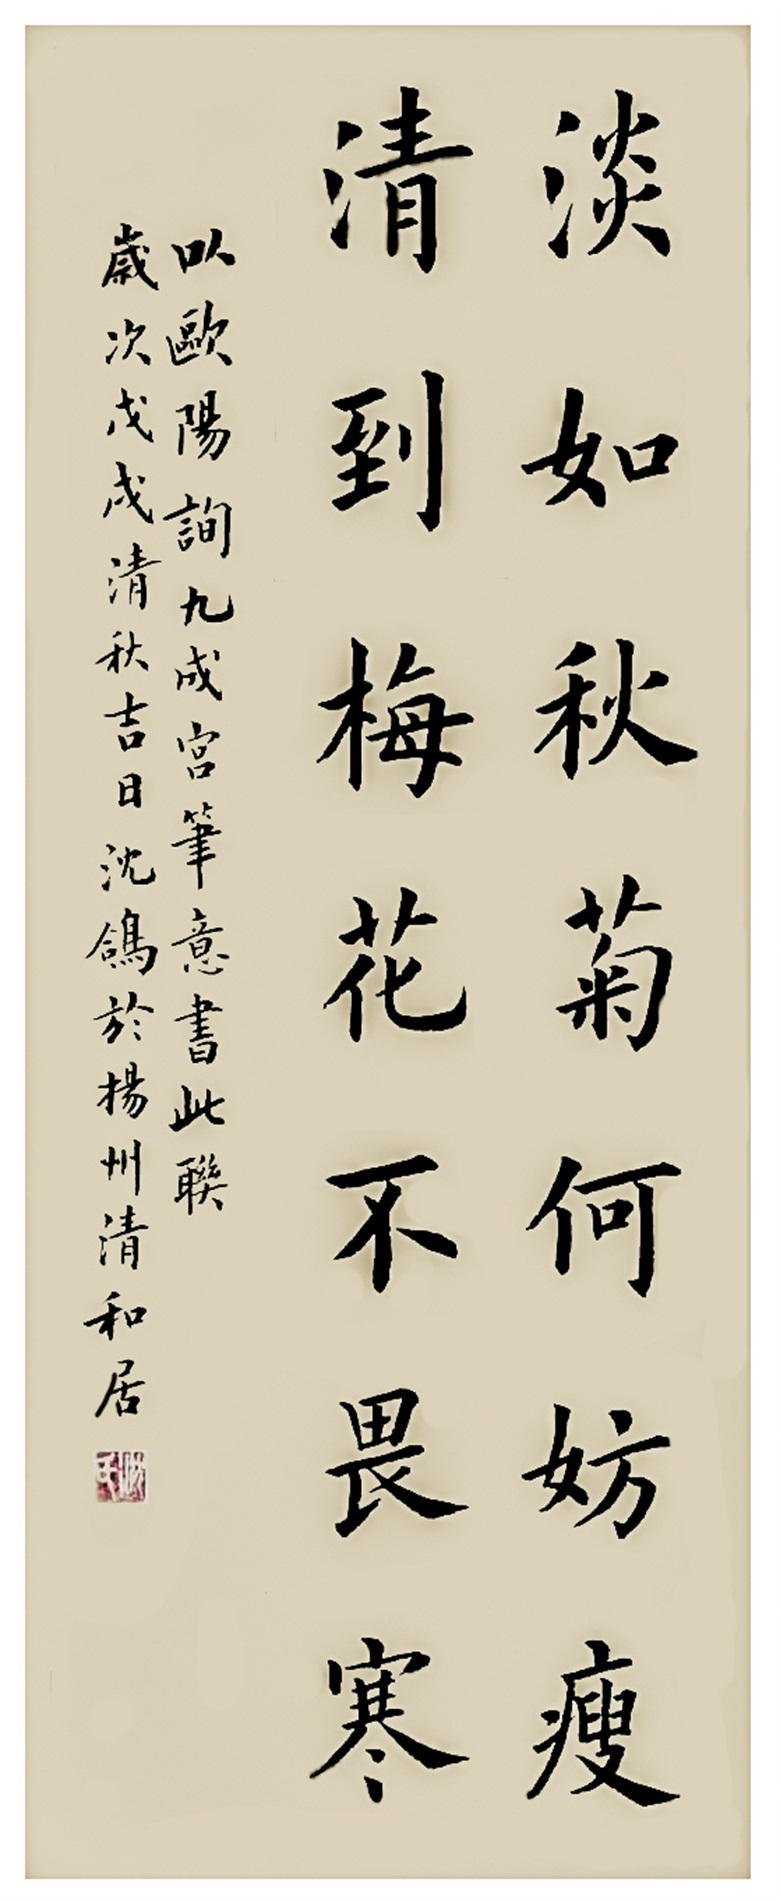 淡如秋菊何妨瘦
清到梅花不畏寒
以歐陽詢九成宮筆意書此聯
歲次戊戌清秋吉日沈鴿於楊州清和居